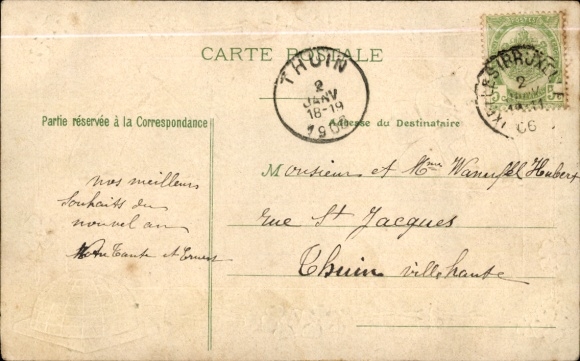 CARTE POSTALE
THUIN
2
JANV
18-19
1906
IXELLES (BRUXELLES)
2
06
5
Partie réservée à la Correspondance
Adresse du Destinataire
nos meilleurs
souhaits du
nouvel an
Votre Tante et Ernest
Monsieur et Mme Hubert
rue St Jacques
Thuin ville haute